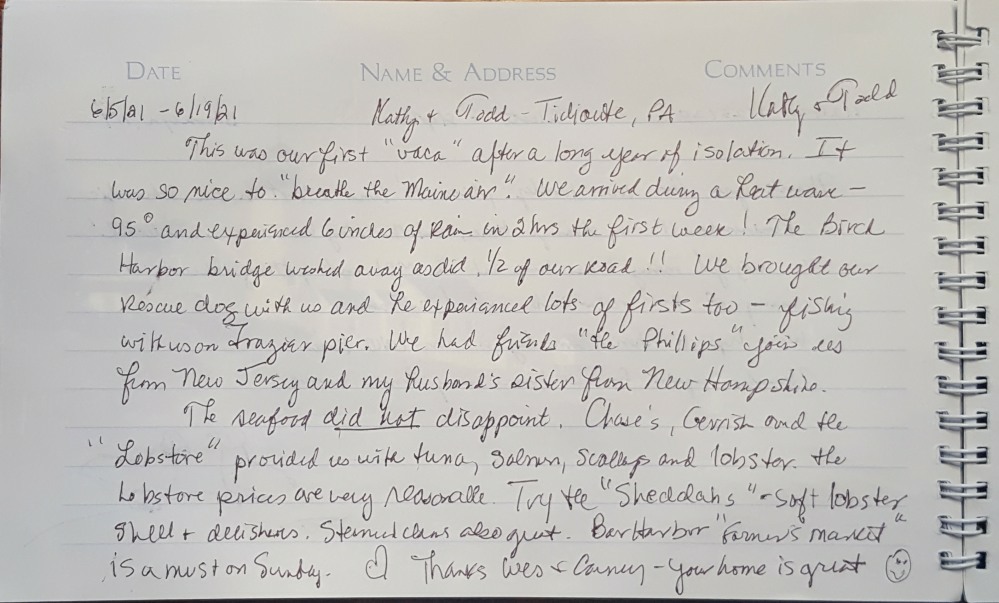 DATE NAME & ADDRESS COMMENTS
6/5/21 - 6/19/21 Kathy + Todd - Tidioute, PA Kathy & Todd
This was our first "vaca" after a long year of isolation. It
was so nice to "breathe the Maine air". We arrived during a heat wave -
95° and experienced 6 inches of rain in 2 hrs the first week! The Birch
Harbor bridge washed away as did 1/2 of our road!! We brought our
rescue dog with us and he experianced lots of firsts too - fishing
with us on Frazier pier. We had friends "the Phillips" join us
from New Jersey and my husband's sister from New Hampshire.
The seafood did not disappoint. Chase's, Gerrish and the
"Lobstore" provided us with tuna, salmon, scallops and lobster. The
Lobstore prices are very reasonable. Try the "Sheddahs" - soft lobster
shell + delishous. Steamed clams also great. Bar Harbor "Farmer's market"
is a must on Sunday. Thanks Wes & - your home is great